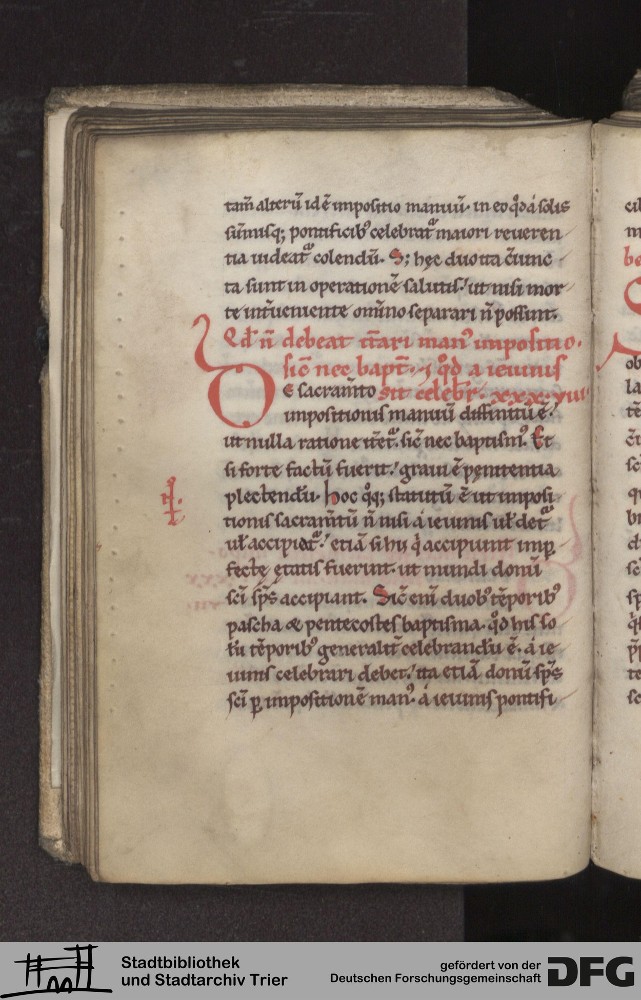 tam̄ alterū id ē impositio manuū. in eo qđ á solis
sūmisq; pontificib' celebrat᷑ maiori reueren
tia uideat᷑ colendū. S; hęc duo ita c̄iunc
ta sunt in operatione salutis. ut nisi mor
te int̄ueniente om̄ino separari ñ possunt.
Qđ ñ debeat it̄ari man' impositio.
sic̄ nec bapt̄. ⁊ qđ a ieiunis
sit celebr̄. xxxviii
De sacram̄to
impositionis manuū diffinitū ē.
ut nulla ratione it̄et᷑. sic̄ nec baptism'. Et
si forte factū fuerit. graui ē pęnitentia
plectendū. hoc qq; statutū ē ut imposi
tionis sacram̄tū ñ nisi á ieiunis uł det᷑
uł accipiat᷑. etiā si hii q̇ accipiunt imp̱
fectę ętatis fuerint. ut mundi donū
sc̄i sp̄s accipiant. Sic̄ eni duob' tēporib'
pascha & pentecostes baptisma. qđ his so
lū tēporib' generalit̄ celebrandū ē. á ie
iunis celebrari debet. ita etiā donū sp̄s
sc̄i p̱ impositionē man'. á ieiunis pontifi
Stadtbibliothek
und Stadtarchiv Trier
gefördert von der
Deutschen Forschungsgemeinschaft
DFG